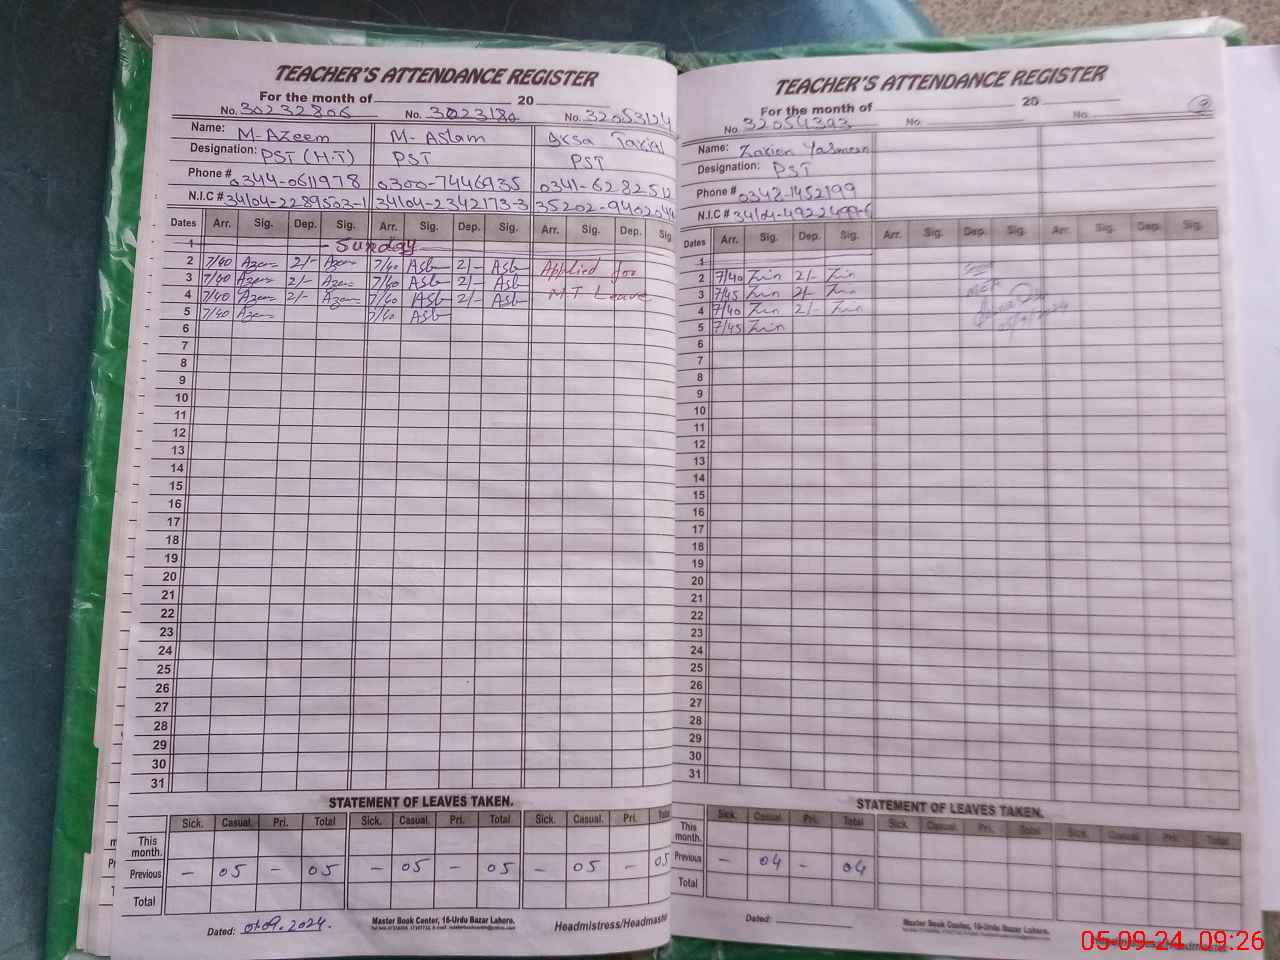 TEACHER'S ATTENDANCE REGISTER
For the month of 20
No. 30232806 No. 3023180 No. 32053124
Name: M-Azeem M. Aslam Aksa Tariq
Designation: PST (H.T) PST PST
Phone # 0344-0611978 0300-7446935 0341-6282512
N.I.C # 34104-2289503-1 34104-2342173-3 35202-940204
Dates Arr. Sig. Dep. Sig. Arr. Sig. Dep. Sig. Arr. Sig. Dep. Sig.
1 - Sunday
2 7/40 Azeem 2/- Azeem 7/40 Asl 2/- Asl Applied for
3 7/40 Azeem 2/- Azeem 7/40 Asl 2/- Asl M.T Leave
4 7/40 Azeem 2/- Azeem 7/40 Asl 2/- Asl
5 7/40 Azeem 7/40 Asl
6
7
8
9
10
11
12
13
14
15
16
17
18
19
20
21
22
23
24
25
26
27
28
29
30
31
STATEMENT OF LEAVES TAKEN.
Sick. Casual. Pri. Total Sick. Casual. Pri. Total Sick. Casual. Pri. Total
This month.
Previous - 05 - 05 - 05 - 05 - 05 - 05
Total
Dated: 01.09.2024. Master Book Center, 16-Urdu Bazar Lahore. Headmistress/Headmaster
TEACHER'S ATTENDANCE REGISTER
For the month of 20
No. 32054393 No. No.
Name: Yasmeen
Designation: PST
Phone # 0348-1452199
N.I.C # 34104-4922499-6
Dates Arr. Sig. Dep. Sig. Arr. Sig. Dep. Sig. Arr. Sig. Dep. Sig.
1
2 7/40 2/-
3 7/45 2/-
4 7/40 2/-
5 7/45
MEA
6
7
8
9
10
11
12
13
14
15
16
17
18
19
20
21
22
23
24
25
26
27
28
29
30
31
STATEMENT OF LEAVES TAKEN.
Sick. Casual. Pri. Total Sick. Casual. Pri. Total Sick. Casual. Pri. Total
This month.
Previous - 04 - 04
Total
Dated: Master Book Center, 16-Urdu Bazar Lahore.
05-09-24 09:26